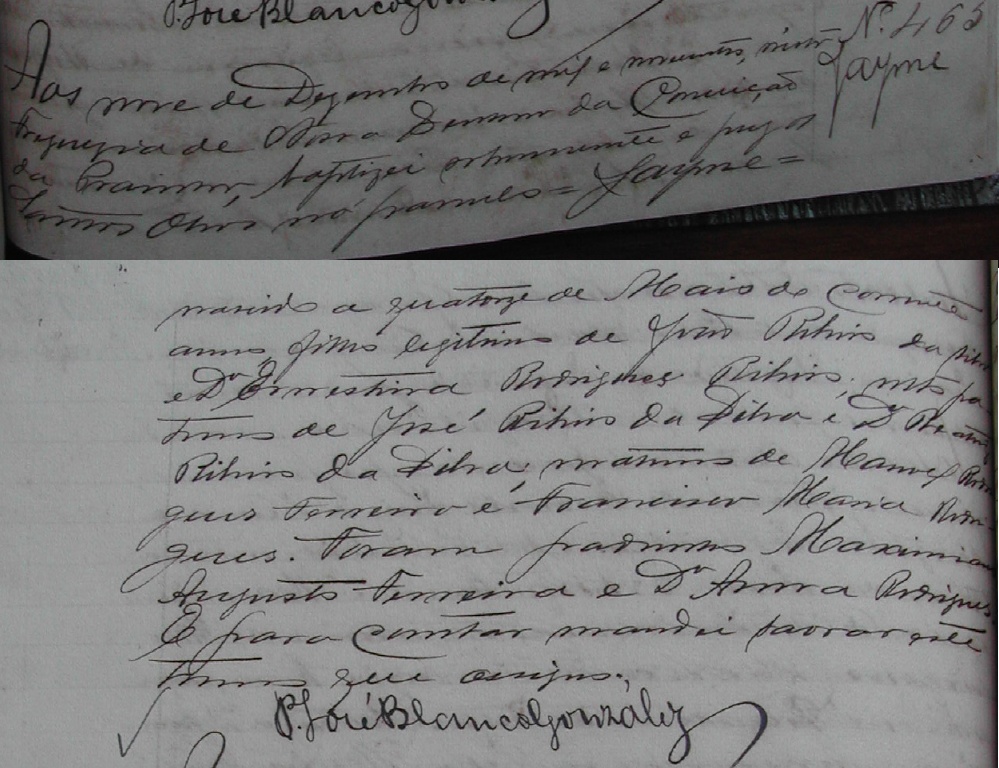 P. José Blanco Gonzalez
Nº 465
Jayme
Aos nove de Dezembro de mil e novecentos, nesta
Freguezia de Nossa Senhora da Conceição
da Prainha, baptizei solemnemente e puz os
Santos Oleos no parvulo = Jayme =
nascido a quatorze de Maio do corrente
anno, filho legitimo de João Ribeiro da Silva
e Dª Ernestina Rodrigues Ribeiro, netto pa-
terno de José Ribeiro da Silva e Dª
Ribeiro da Silva; materno de Manoel Rodri-
gues Ferreira e Francisca Maria Rodri-
gues. Foram padrinhos Maximiano
Augusto Ferreira e Dª Anna Rodrigues
E para constar mandei lavrar este
termo que assigno.
P. José Blanco Gonzalez